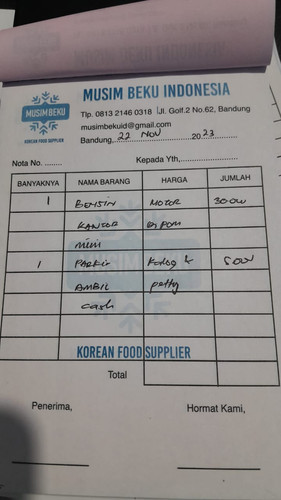 MUSIM BEKU
KOREAN FOOD SUPPLIER
MUSIM BEKU INDONESIA
Tlp. 0813 2146 0318 Jl. Golf.2 No.62, Bandung
musimbekuid@gmail.com
Bandung, 22 NOV 2023
Nota No. ........
Kepada Yth,....................
BANYAKNYA NAMA BARANG HARGA JUMLAH
1 BENSIN MOTOR
KANTOR
mimi
1 PARKIR
AMBIL petty
cash
KOREAN FOOD SUPPLIER
Total
Penerima, Hormat Kami,